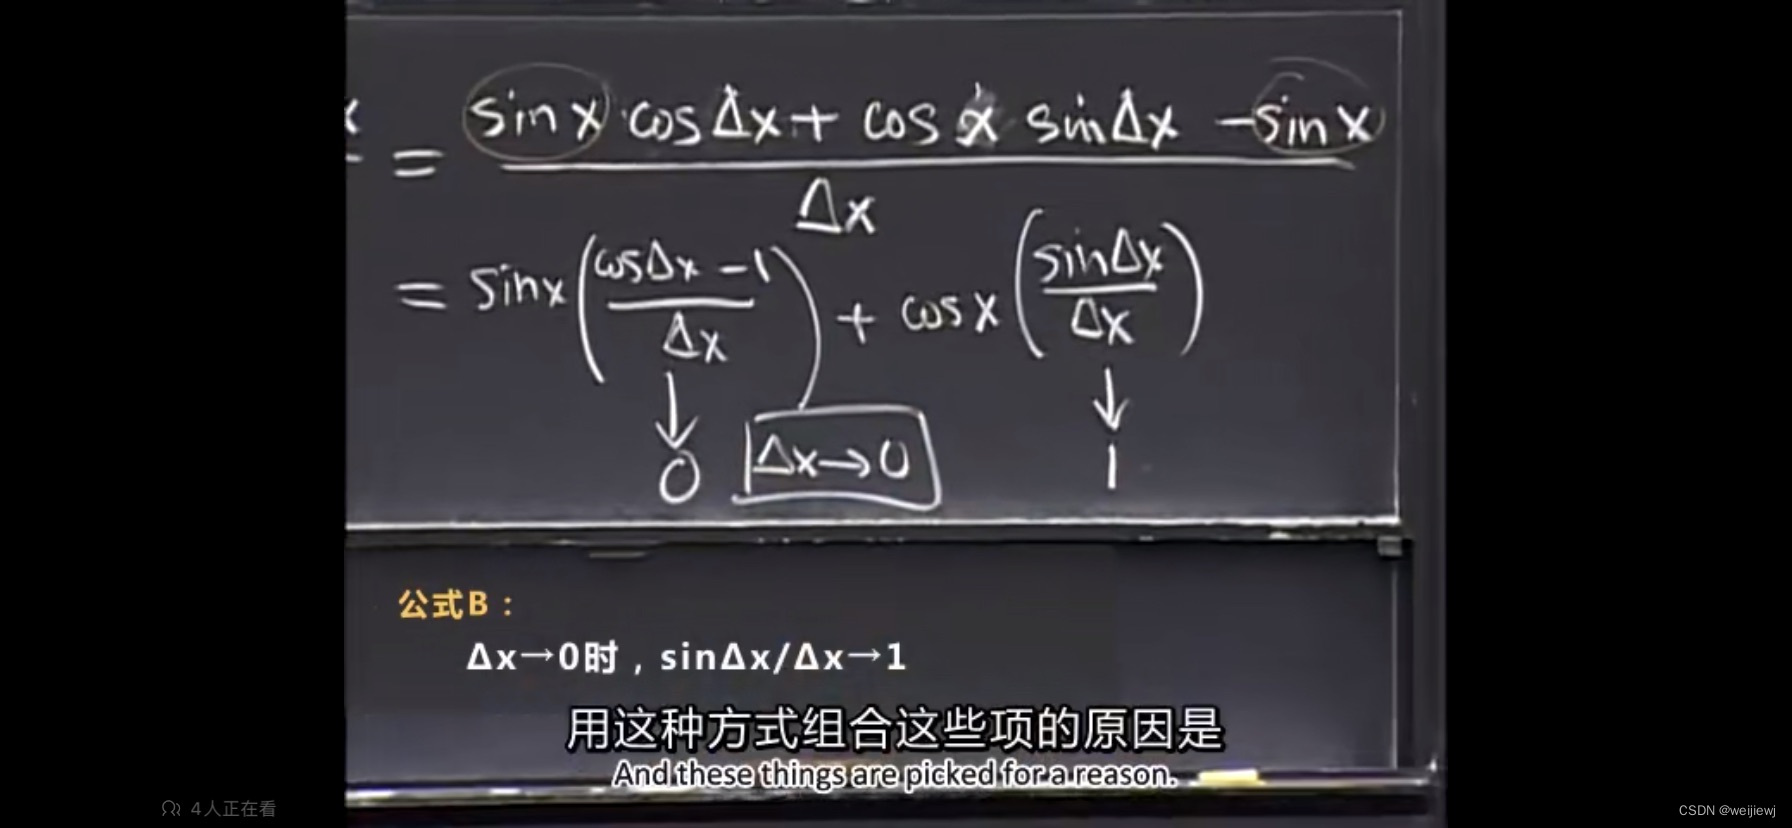 = sin x · cos Δx + cos x sin Δx − sin x
Δx
= sin x ( cos Δx − 1 / Δx ) + cos x ( sin Δx / Δx )
↓ ↓
0 Δx→0 1
公式B：
Δx→0时，sinΔx/Δx→1
用这种方式组合这些项的原因是
And these things are picked for a reason.
4人正在看
CSDN @weijiewj